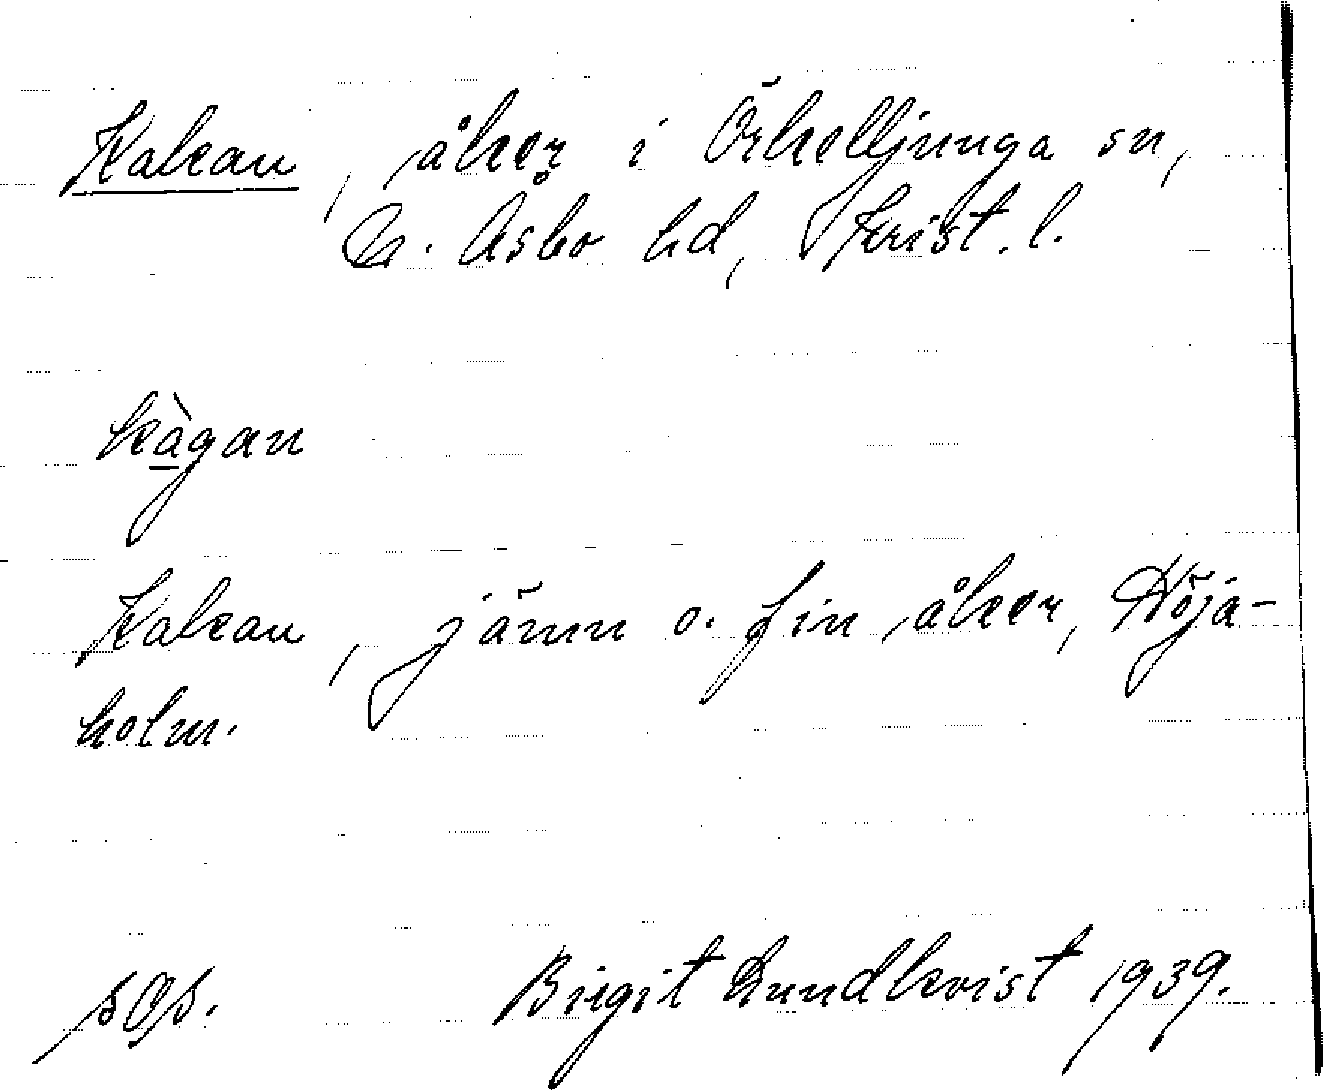 Kakan, åker i Örkelljunga sn,
N. Åsbo hd, Krist. l.
kàgan
Kakan, jämn o. fin åker, Höja-
holm.
Birgit Lundkvist 1939.